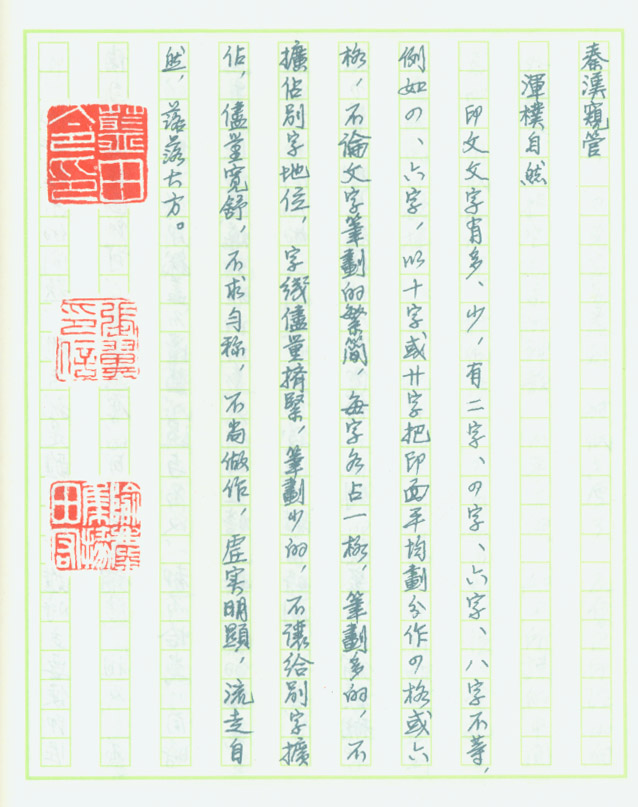 秦溪窺管
渾樸自然
印文文字有多、少，有二字、四字、六字、八字不等，
例如四、六字，以十字或廿字把印面平均劃分作四格或六
格，不論文字筆劃的繁簡，每字各占一格，筆劃多的，不
擴佔別字地位，字綫儘量擠緊，筆劃少的，不讓給別字擴
佔，儘量寬舒，不求匀称，不尚做作，虛实明顯，流走自
然，落落大方。